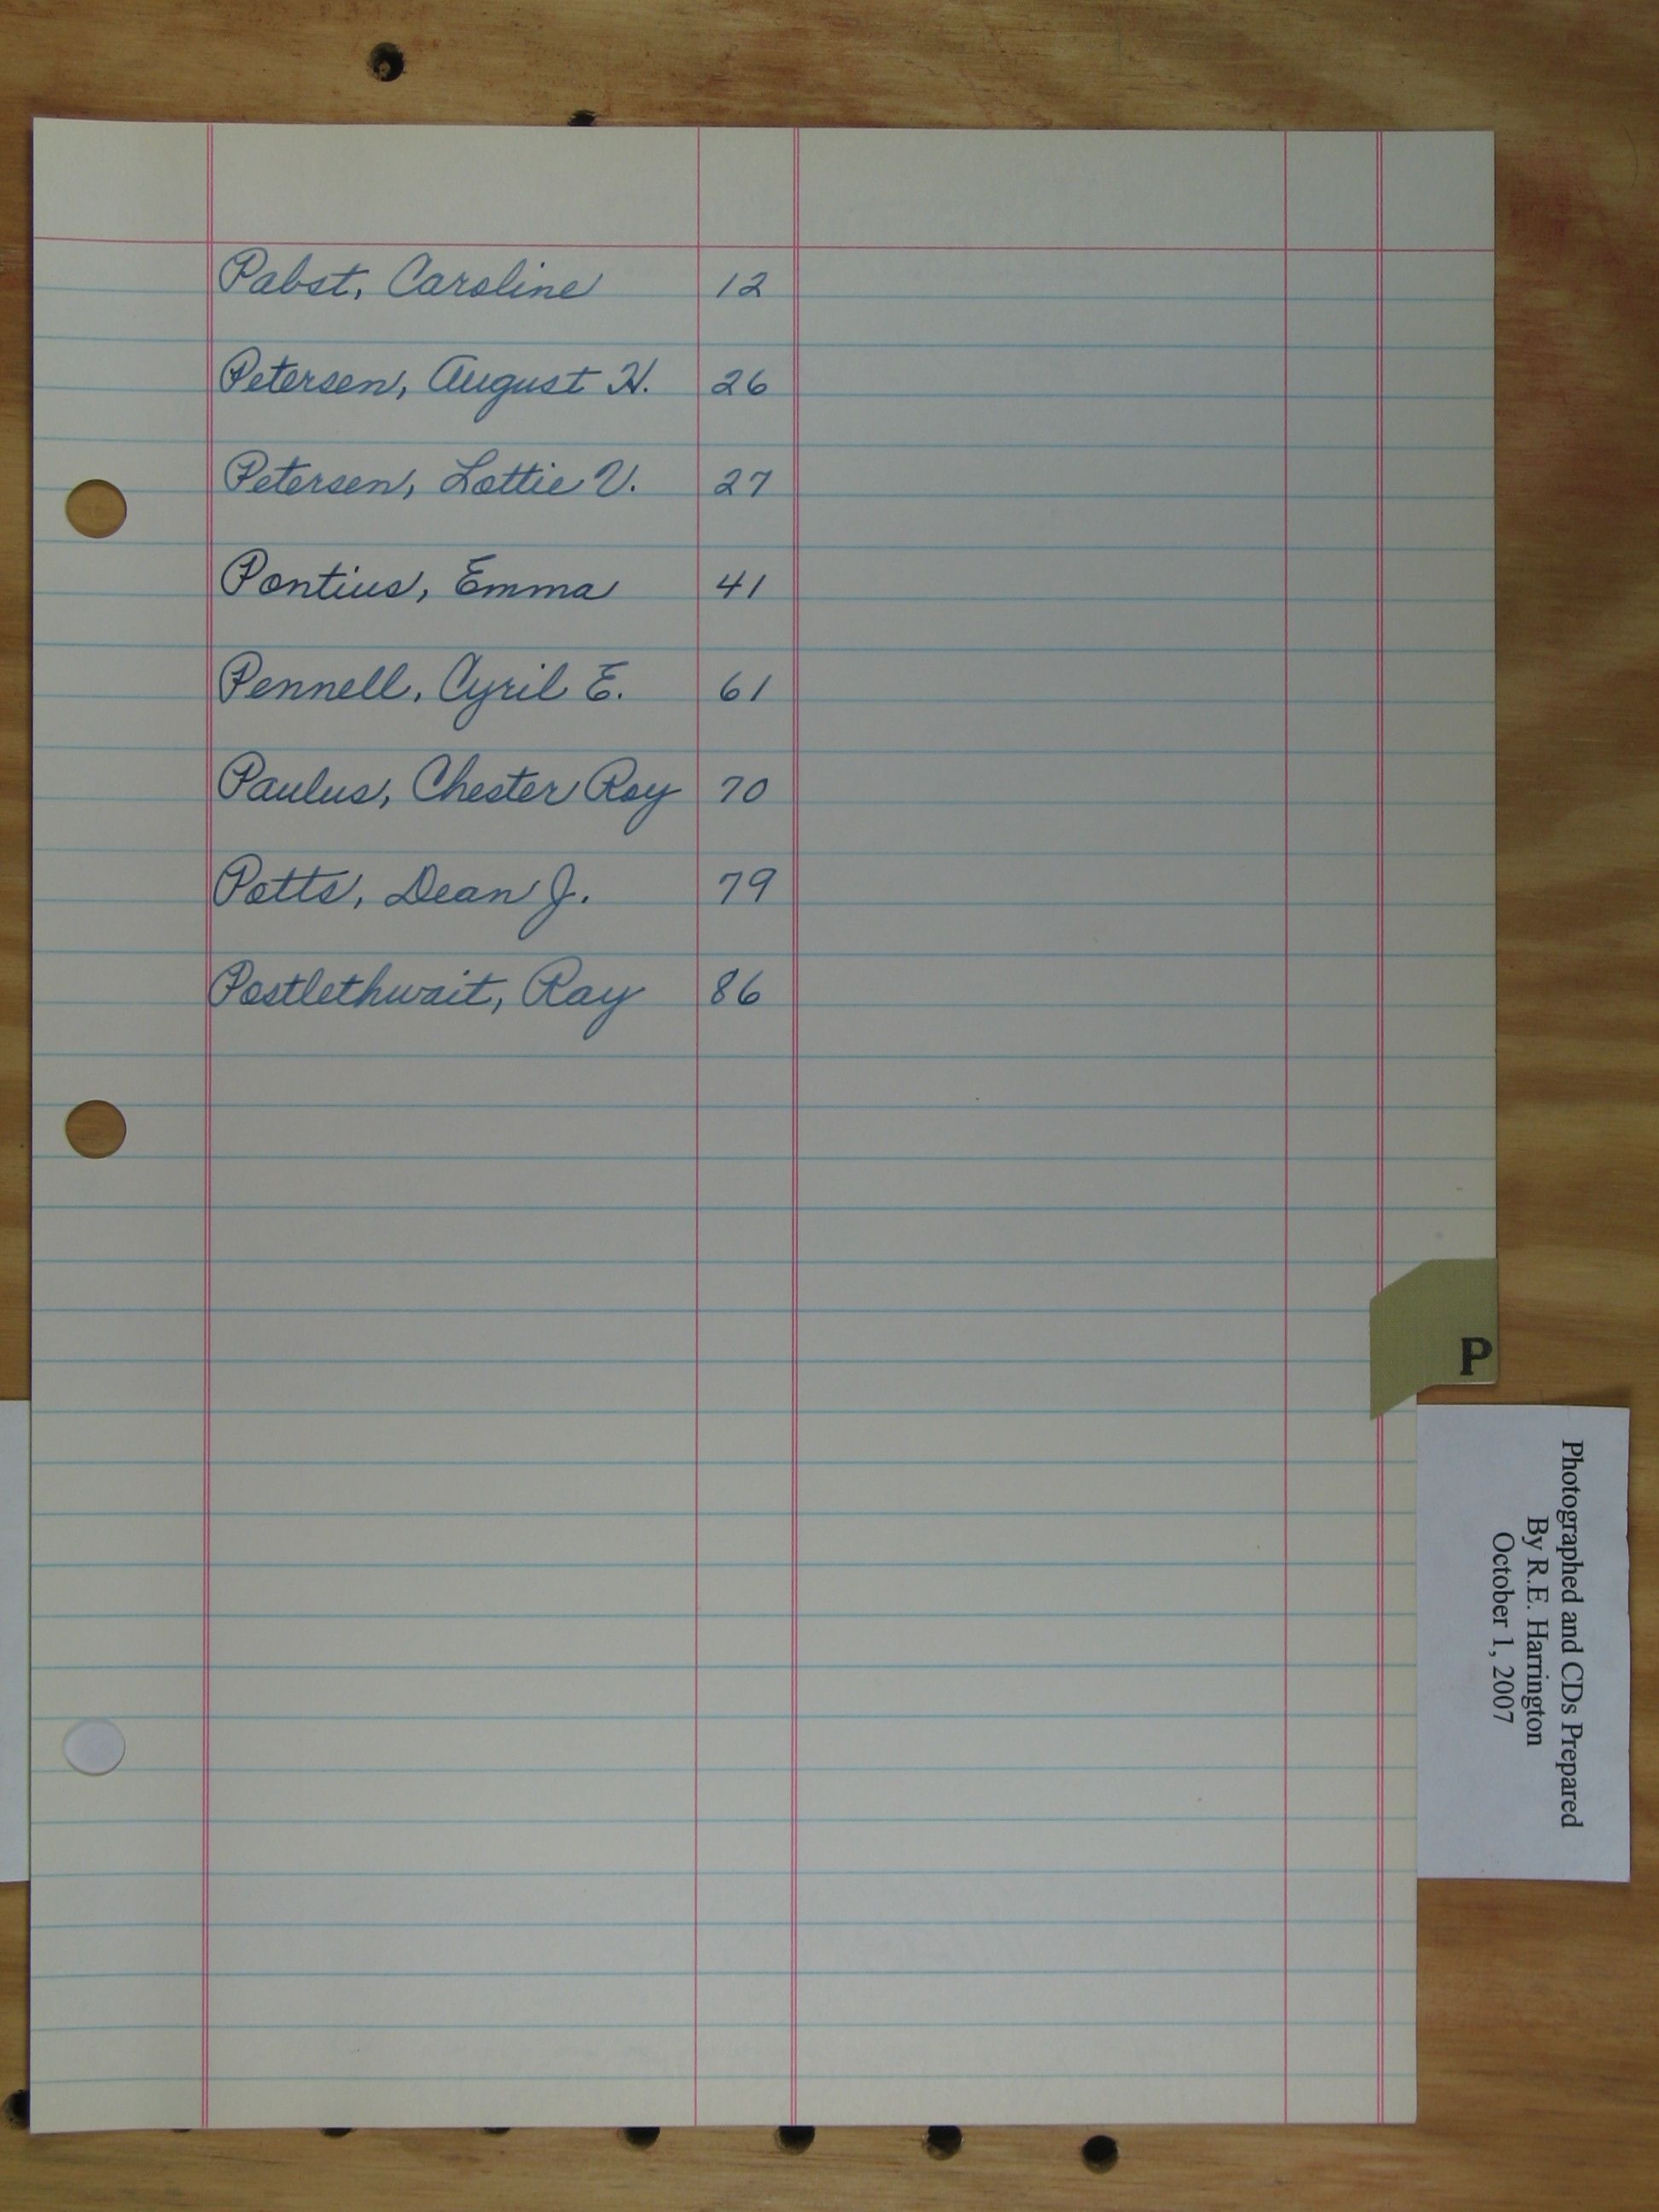 Pabst, Caroline 12
Petersen, August H. 26
Petersen, Lottie V. 27
Pontius, Emma 41
Pennell, Cyril E. 61
Paulus, Chester Roy 70
Potts, Dean J. 79
Postlethwait, Ray 86
P
Photographed and CDs Prepared
By R.E. Harrington
October 1, 2007